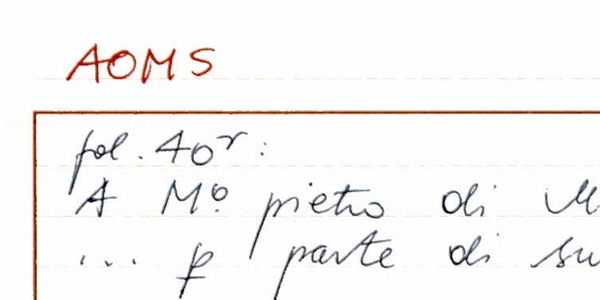 AOMS
fol. 40r:
A Mo pietro di
... p parte di su